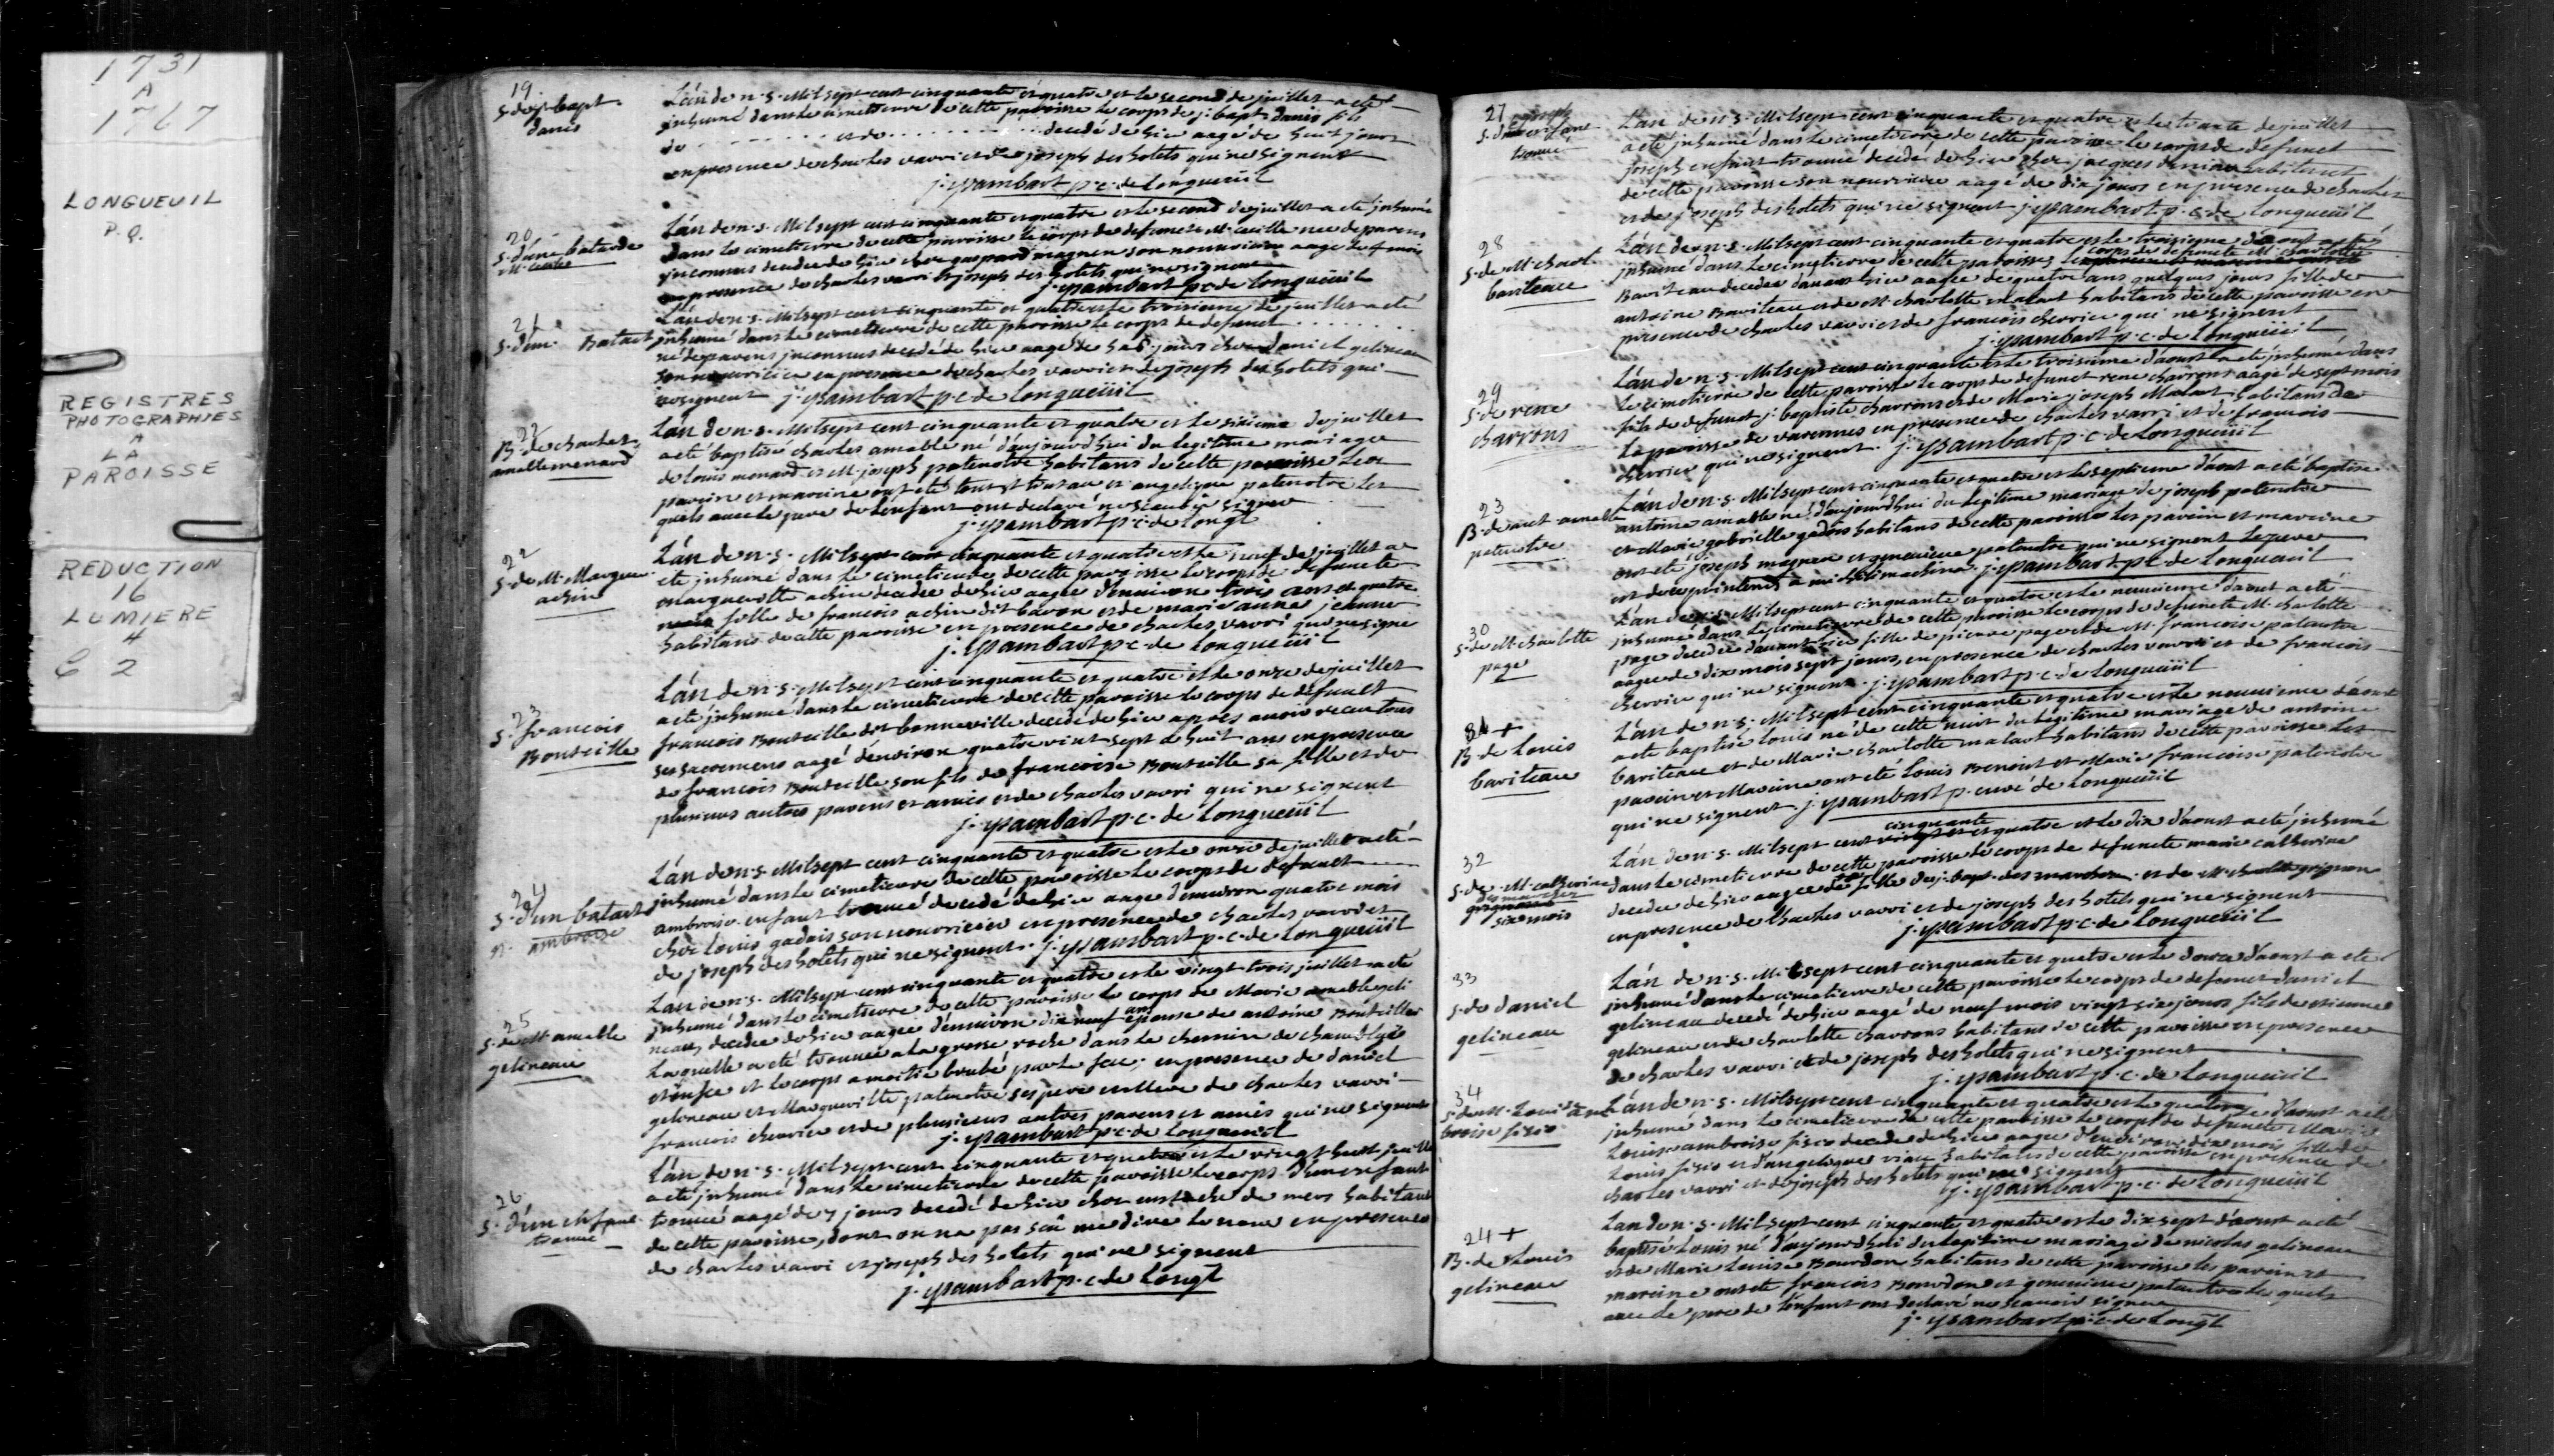 1731
A
1767
LONGUEUIL
P.Q.
REGISTRES
PHOTOGRAPHIES
A
LA
PAROISSE
REDUCTION
16
LUMIERE
4
C 2
19
S. de j. bapt.
danis
L'an de n. s. Mil sept cent cinquante et quatre et le second de juillet a eté
inhumé dans le cimetierre de cette paroisse le corps de j. bapt. danis fils
de . . . . . . . et de . . . . . . . decedé de hier aagé de huit jours
en presence de charles varri et de joseph des hotels qui ne signent
j. ysambart p. c. de longueüil
20
S. d'une batarde
M. cecile
L'an de n. s. Mil sept cent cinquante et quatre et le second de juillet a eté inhumé
dans le cimetierre de cette paroisse le corps de defuncte M. cecille nee de parens
inconnus decedee de hier chez gaspard magnen son nourricier aagé de 4 mois
en presence de charles varri et joseph des hotels qui ne signent
j. ysambart p. c. de longueüil
21
S. d'un Batart
L'an de n. s. Mil sept cent cinquante et quatre et le troisieme de juillet a eté
inhumé dans le cimetierre de cette paroisse le corps de defunct . . . . . . .
né de parens inconnus decedé de hier aagé de jours chez daniel gelineau
son nourricier en presence de charles varri et de joseph des hotels qui
ne signent j. ysambart p. c. de longueüil
22
B. de charles
amable menard
L'an de n. s. Mil sept cent cinquante et quatre et le sixieme de juillet
a eté baptisé charles amable né d'aujourd'hui du legitime mariage
de louis menard et M. joseph patenotre habitans de cette paroisse les
parein et mareine ont eté et angelique patenotre les
quels avec le pere de l'enfant ont declaré ne scauoir signer
j. ysambart p. c. de longl
22
S. de M. Margue.
achin
L'an de n. s. Mil sept cent cinquante et quatre et le neuf de juillet a
eté inhumé dans le cimetierre de cette paroisse le corps de defuncte
marguerite achin decedee de hier aagee d'enuiron trois ans et quatre
mois fille de francois achin dit baron et de marie anne jeanne
habitans de cette paroisse en presence de charles varri qui ne signe
j. ysambart p. c. de longueüil
23
S. francois
Bouteille
L'an de n. s. Mil sept cent cinquante et quatre et le onze de juillet
a eté inhumé dans le cimetierre de cette paroisse le corps de defunct
francois Bouteille dit bonneville decedé de hier apres auoir receu tous
ses sacremens aagé d'enuiron quatre vint sept a huit ans en presence
de francois Bouteille son fils de francoise Bouteille sa fille et de
plusieurs autres parens et amis et de charles varri qui ne signent
j. ysambart p. c. de longueüil
24
S. d'un batart
n. ambroise
L'an de n. s. Mil sept cent cinquante et quatre et le onze de juillet a eté
inhumé dans le cimetierre de cette paroisse le corps de defunct
ambroise enfant trouué decedé de hier aagé d'enuiron quatre mois
chez louis gadois son nourricier en presence de charles varri et
de joseph des hotels qui ne signent. j. ysambart p. c. de longueüil
25
S. de M. amable
gelineau
L'an de n. s. Mil sept cent cinquante et quatre et le vingt trois juillet a eté
inhumé dans le cimetierre de cette paroisse le corps de Marie amable geli
neau, decedee de hier aagee d'enuiron dix neuf ans epouse de antoine Bouteille
laquelle a eté trouuee a la grosse roche dans le chemin de chambly
etoufee et le corps a moitié brulé par le feu; en presence de daniel
gelineau et Marguerite patenotre ses pere et Mere de charles varri
francois cherrier et de plusieurs autres parens et amis qui ne signent
j. ysambart p. c. de longueuil
26
S. d'un enfant
trouué
L'an de n. s. Mil sept cent cinquante et quatre et le vingt huit juillet
a eté inhumé dans le cimetierre de cette paroisse le corps d'un enfant
trouué aagé de 7 jours decedé de hier chez eustache de mers habitant
de cette paroisse, dont on n'a pas sceu me dire le nom en presence
de charles varri et joseph des hotels qui ne signent
j. ysambart p. c. de longl
27
joseph
S. d'un enfant
trouué
L'an de n. s. Mil sept cent cinquante et quatre et le trente de juillet
a eté inhumé dans le cimetierre de cette paroisse le corps de defunct
joseph enfant trouué decedé de hier chez jacques deniau habitant
de cette paroisse son nourricier aagé de dix jours en presence de charles
et de joseph des hotels qui ne signent j. ysambart p. c. de longueüil
28
S. de M. charl.
bariteau
L'an de n. s. Mil sept cent cinquante et quatre et le troisieme d'aoust a eté
inhumé dans le cimetierre de cette paroisse, le corps de defuncte M. charlotte
Bariteau decedee d'auant hier aagee de quatre ans quelques jours fille de
antoine Bariteau et de M. charlotte malart habitans de cette paroisse en
presence de charles varri et de francois cherrier qui ne signent
j. ysambart p. c. de longueüil
29
S. de rene
charrons
L'an de n. s. Mil sept cent cinquante et le troisieme d'aoust a eté inhumé dans
le cimetierre de cette paroisse le corps de defunct rene charrons aagé de sept mois
fils de defunct j. baptiste charrons et de Marie joseph Malart habitans de
la paroisse de varennes en presence de charles varri et de francois
cherrier qui ne signent. j. ysambart p. c. de longueüil
23
B. de ant. amable
patenotre
L'an de n. s. Mil sept cent cinquante et quatre et le septieme d'aout a eté baptisé
antoine amable né d'aujourd'hui du legitime mariage de joseph patenotre
et Marie gabrielle gadois habitans de cette paroisse les parein et mareine
ont eté joseph magnen et genevieve patenotre qui ne signent le pere
est de ce printems a michilimachina. j. ysambart p. c. de longueüil
30
S. de M. charlotte
page
L'an de n. s. Mil sept cent cinquante et quatre et le neuuieme d'aout a eté
inhumé dans le cimetierre de cette paroisse le corps de defuncte M. charlotte
page decedee d'auant hier fille de pierre page et de M. francoise patenotre
aagee de dix mois sept jours, en presence de charles varri et de francois
cherrier qui ne signent. j. ysambart p. c. de longueüil
24 +
B. de louis
bariteau
L'an de n. s. Mil sept cent cinquante et quatre et le neuuieme d'aout
a eté baptisé louis né de cette nuit du legitime mariage de antoine
bariteau et de Marie charlotte malart habitans de cette paroisse les
parein et Mareine ont eté louis Benoist et Marie francoise patenotre
qui ne signent. j. ysambart p. curé de longueüil
32
S. de M. catherine
des marchez
six mois
cinquante
L'an de n. s. Mil sept cent et quatre et le dix d'aoust a eté inhumé
dans le cimetierre de cette paroisse le corps de defuncte marie catherine
decedee de hier aagee de fille de j. bapt. des et de M. grignon
en presence de charles varri et de joseph des hotels qui ne signent
j. ysambart p. c. de longueüil
33
S. de daniel
gelineau
L'an de n. s. Mil sept cent cinquante et quatre et le douze d'aoust a eté
inhumé dans le cimetierre de cette paroisse le corps de defunct daniel
gelineau decedé de hier aagé de neuf mois vingt six jours fils de etienne
gelineau et de charlotte charrons habitans de cette paroisse en presence
de charles varri et de joseph des hotels qui ne signent
j. ysambart p. c. de longueüil
34
S. de M. Louise am
broise
L'an de n. s. Mil sept cent cinquante et quatre et le quatorze d'aoust a eté
inhumé dans le cimetierre de cette paroisse le corps de defuncte Marie
Louise ambroise decedee de hier aagee d'enuiron dix mois fille de
louis et d'angelique viau habitans de cette paroisse en presence de
charles varri et de joseph des hotels qui ne signent
j. ysambart p. c. de longueüil
24 +
B. de Louis
gelineau
L'an de n. s. Mil sept cent cinquante et quatre et le dix sept d'aoust a eté
baptisé Louis né d'aujourd'hui du legitime mariage de nicolas gelineau
et de Marie Louise Bourdon habitans de cette paroisse les parein et
mareine ont eté francois Bourdon et genevieve patenotre les quels
avec le pere de l'enfant ont declaré ne scauoir signer
j. ysambart p. c. de longl